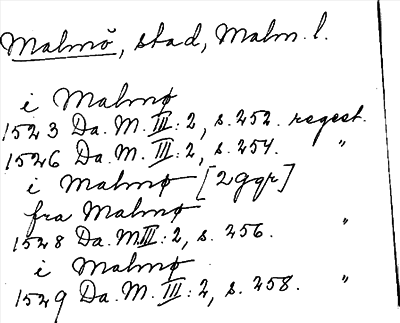 Malmö, stad, Malm. l.
i Malmø
1523 Da. M. III: 2, s. 252. regest.
1526 Da. M. III: 2, s. 254. "
i Malmø [2 ggr]
fra Malmø
1528 Da. M. III: 2, s. 256. "
i Malmø
1529 Da. M. III: 2, s. 258. "